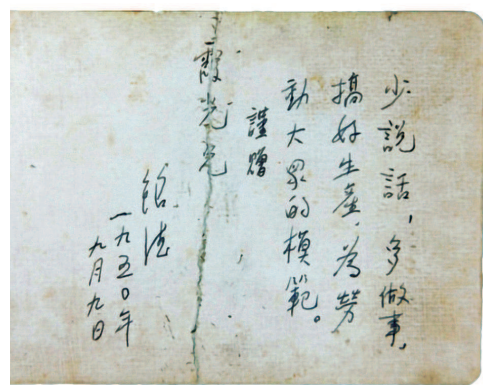 少說話，多做事，
搞好生產，為勞
動大眾的模範。
謹贈
霞光兄
一九五〇年
九月九日